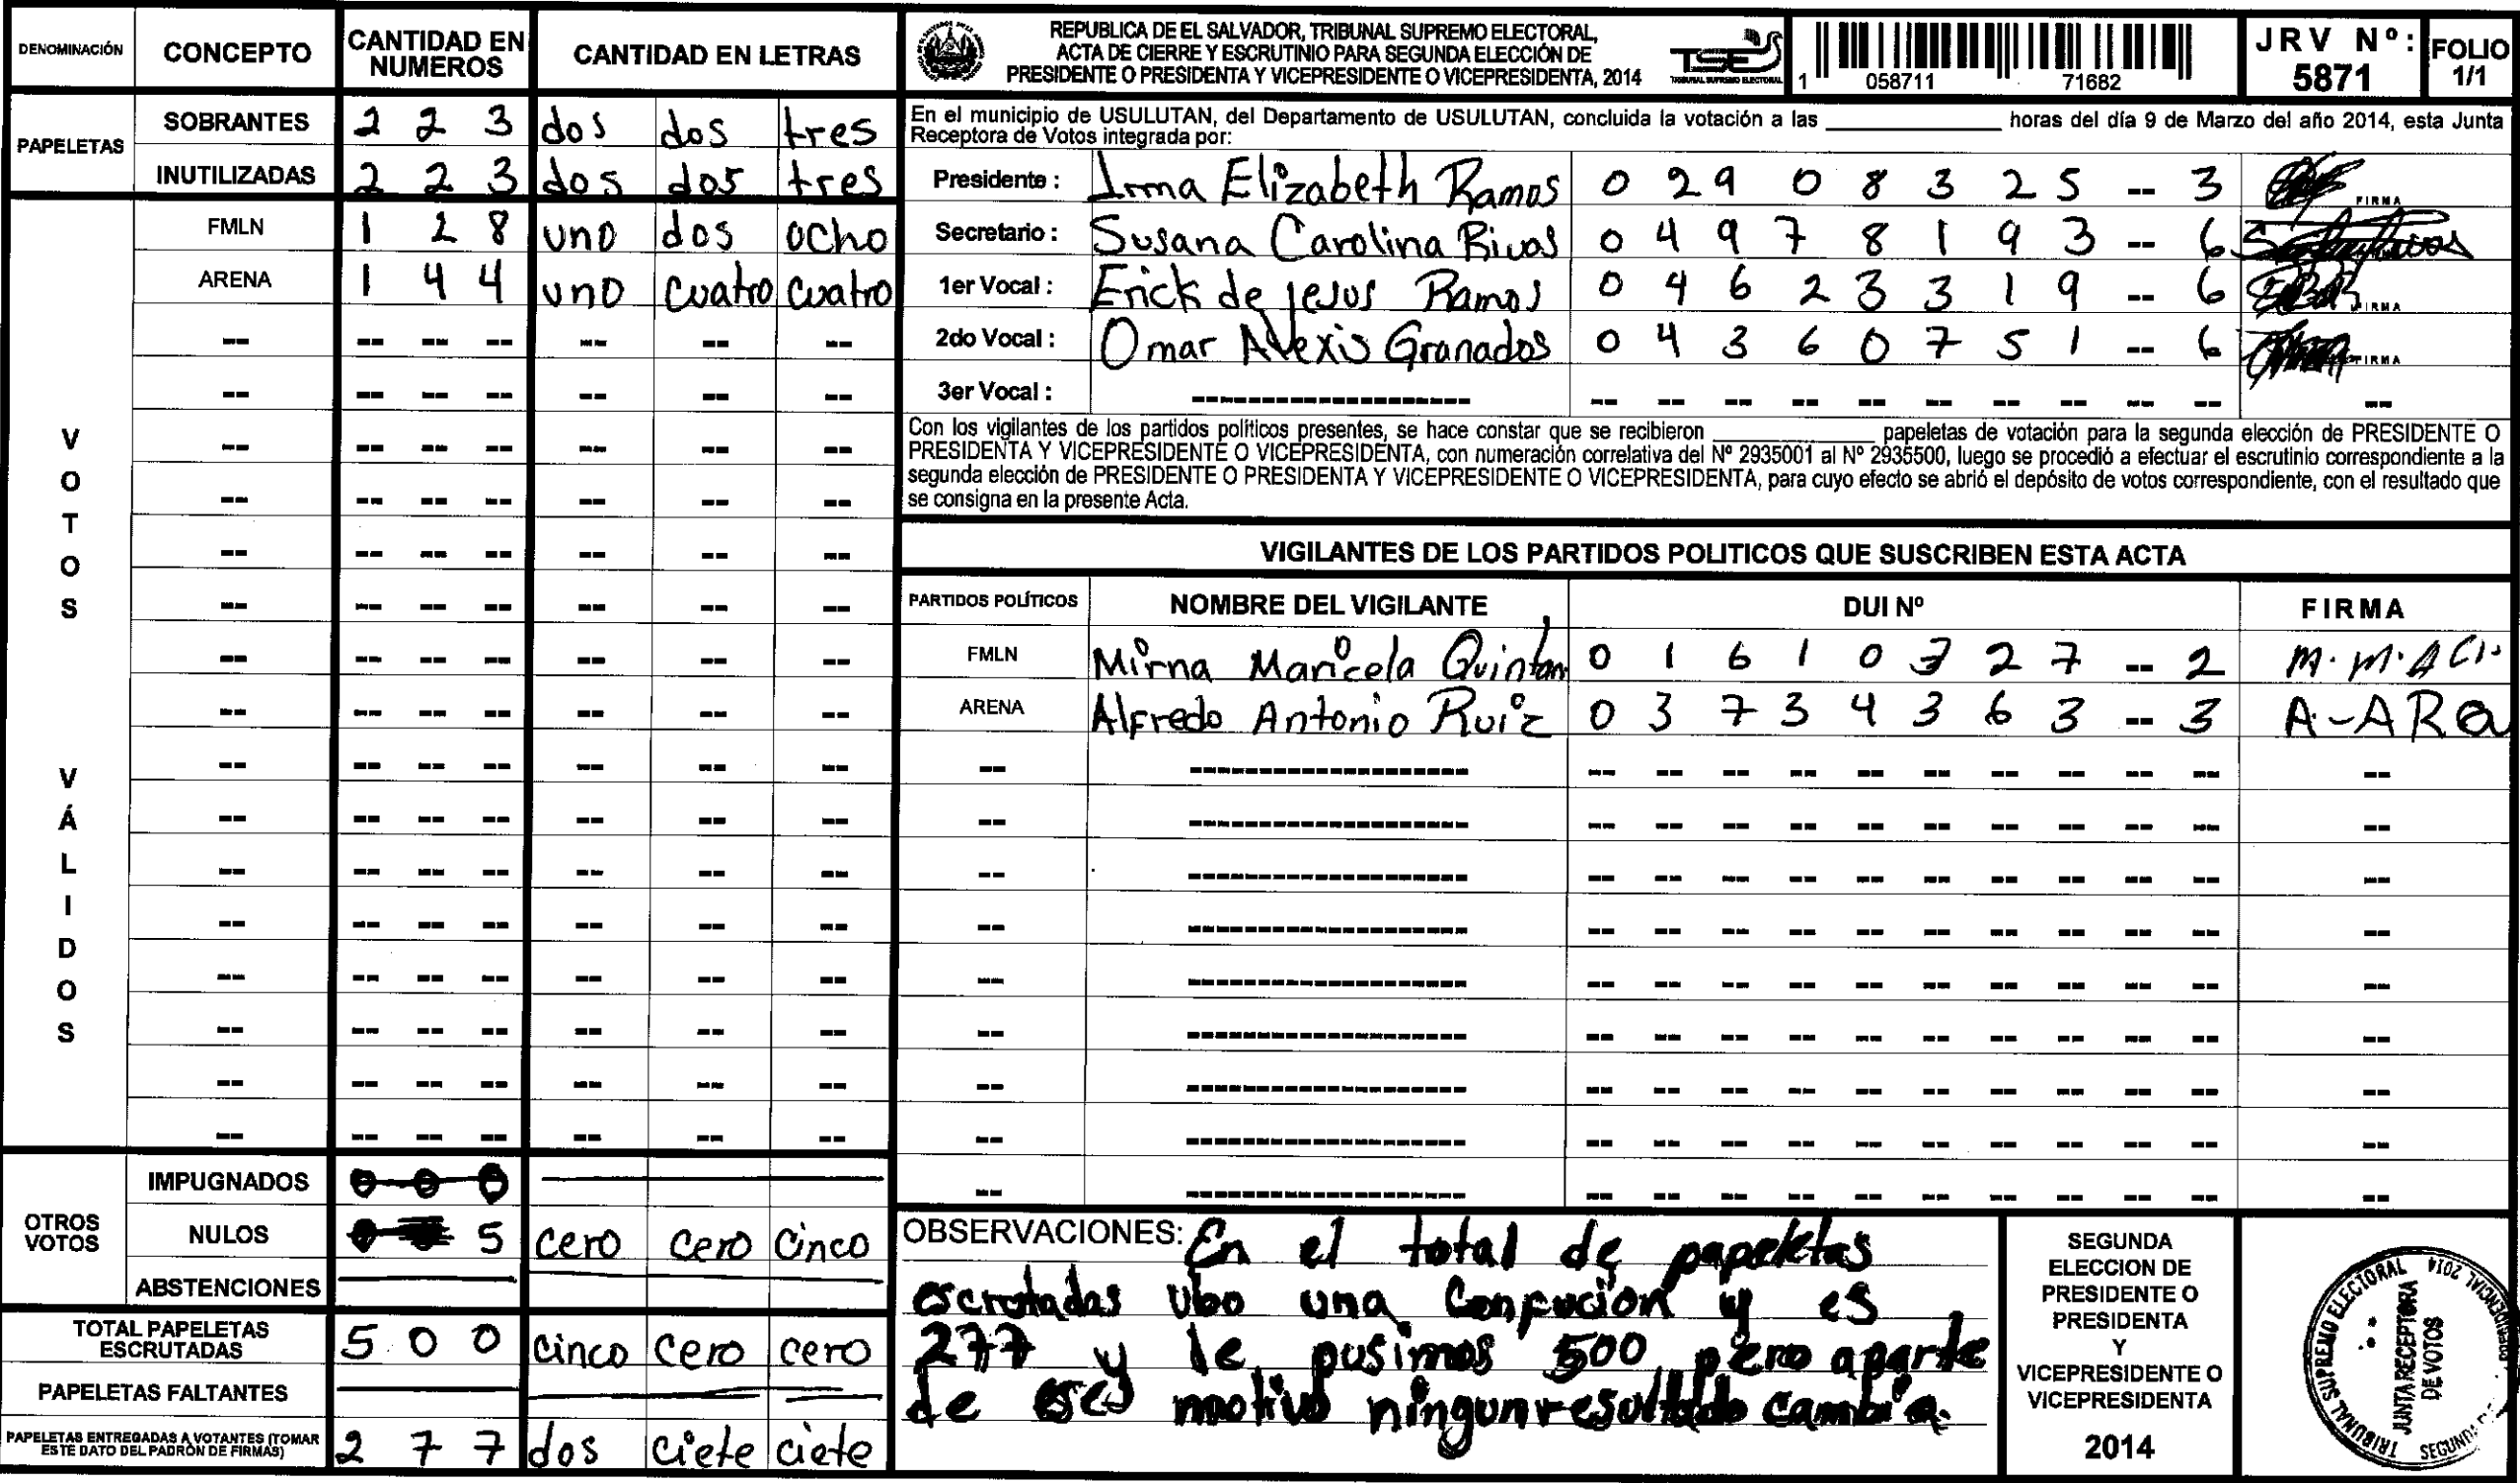 DENOMINACIÓN CONCEPTO CANTIDAD EN NUMEROS CANTIDAD EN LETRAS
PAPELETAS
SOBRANTES 2 2 3 dos dos tres
INUTILIZADAS 2 2 3 dos dos tres
VOTOS VÁLIDOS
FMLN 1 2 8 uno dos ocho
ARENA 1 4 4 uno cuatro cuatro
OTROS VOTOS
IMPUGNADOS 0 0 0
NULOS 5 cero cero cinco
ABSTENCIONES
TOTAL PAPELETAS ESCRUTADAS 5 0 0 cinco cero cero
PAPELETAS FALTANTES
PAPELETAS ENTREGADAS A VOTANTES (TOMAR ESTE DATO DEL PADRÓN DE FIRMAS) 2 7 7 dos ciete ciete
REPUBLICA DE EL SALVADOR, TRIBUNAL SUPREMO ELECTORAL,
ACTA DE CIERRE Y ESCRUTINIO PARA SEGUNDA ELECCIÓN DE
PRESIDENTE O PRESIDENTA Y VICEPRESIDENTE O VICEPRESIDENTA, 2014
TSE
TRIBUNAL SUPREMO ELECTORAL
1 058711 71682
JRV Nº: 5871
FOLIO 1/1
En el municipio de USULUTAN, del Departamento de USULUTAN, concluida la votación a las ____________ horas del día 9 de Marzo del año 2014, esta Junta
Receptora de Votos integrada por:
Presidente : Irma Elizabeth Ramos 0 2 9 0 8 3 2 5 -- 3 FIRMA
Secretario : Susana Carolina Rivas 0 4 9 7 8 1 9 3 -- 6
1er Vocal : Erick de jesus Ramos 0 4 6 2 3 3 1 9 -- 6 FIRMA
2do Vocal : Omar Alexis Granados 0 4 3 6 0 7 5 1 -- 6 FIRMA
3er Vocal : --------------------
Con los vigilantes de los partidos políticos presentes, se hace constar que se recibieron ____________ papeletas de votación para la segunda elección de PRESIDENTE O
PRESIDENTA Y VICEPRESIDENTE O VICEPRESIDENTA, con numeración correlativa del Nº 2935001 al Nº 2935500, luego se procedió a efectuar el escrutinio correspondiente a la
segunda elección de PRESIDENTE O PRESIDENTA Y VICEPRESIDENTE O VICEPRESIDENTA, para cuyo efecto se abrió el depósito de votos correspondiente, con el resultado que
se consigna en la presente Acta.
VIGILANTES DE LOS PARTIDOS POLITICOS QUE SUSCRIBEN ESTA ACTA
PARTIDOS POLÍTICOS NOMBRE DEL VIGILANTE DUI Nº FIRMA
FMLN Mirna Maricela Quintan 0 1 6 1 0 3 2 7 -- 2
ARENA Alfredo Antonio Ruiz 0 3 7 3 4 3 6 3 -- 3
OBSERVACIONES: En el total de papeletas
escrutadas ubo una Confucion y es
277 y le pusimos 500 pero aparte
de ese motivo ningun resultado cambia.
SEGUNDA
ELECCION DE
PRESIDENTE O
PRESIDENTA
Y
VICEPRESIDENTE O
VICEPRESIDENTA
2014
TRIBUNAL SUPREMO ELECTORAL
JUNTA RECEPTORA
DE VOTOS